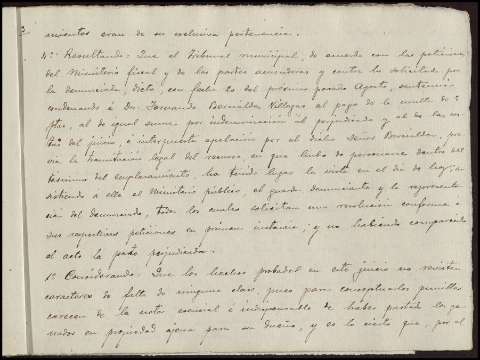 mientos eran de su exclusiva pertenencia.
4º Resultando: Que el tribunal municipal, de acuerdo con las peticiones
del Ministerio fiscal y de las partes acusadoras y contra lo solicitado por
la denunciada, dictó, con fecha 20 del próximo pasado Agosto, sentencia
condenando á Dn. Fernando Bernáldez Villegas al pago de la multa de
ptas, al de igual suma por indemnización al perjudicado y al de las cos-
tas del juicio; é interpuesta apelación por el dicho Señor Bernáldez, pre-
via la tramitación legal del recurso, en que hubo de personarse dentro del
término del emplazamiento, ha tenido lugar la vista en el día de hoy, a-
sistiendo á ella el Ministerio público, el guarda denunciante y la representa-
ción del denunciado, todos los cuales solicitan una resolución conforme á
sus respectivas peticiones en primera instancia; y no habiendo comparecido
al acto la parte perjudicada.
1º Considerando: Que los hechos probados en este juicio no revisten
caracteres de falta de ninguna clase, pues para conceptuarlos punibles
carecen de la nota esencial é indispensable de haber pastado los ga-
nados en propiedad ajena para su dueño, y es lo cierto que, por el